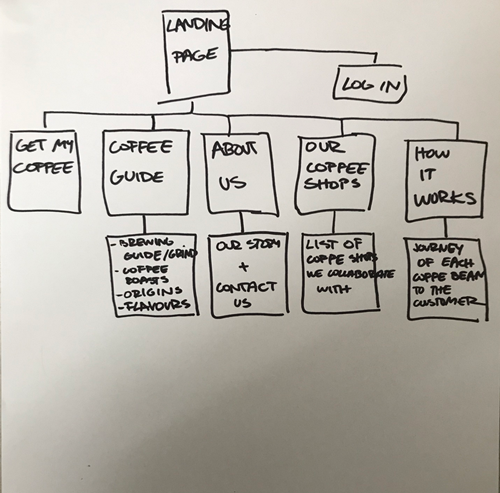 LANDING
PAGE
LOG IN
GET MY
COFFEE
COFFEE
GUIDE
ABOUT
US
OUR
COFFEE
SHOPS
HOW
IT
WORKS
-BREWING
GUIDE/GRIND
-COFFEE
ROASTS
-ORIGINS
-FLAVOURS
OUR STORY
+
CONTACT
US
LIST OF
COFFE SHOPS
WE COLLABORATE
WITH
JOURNEY
OF EACH
COFFE BEAN
TO THE
CUSTOMER